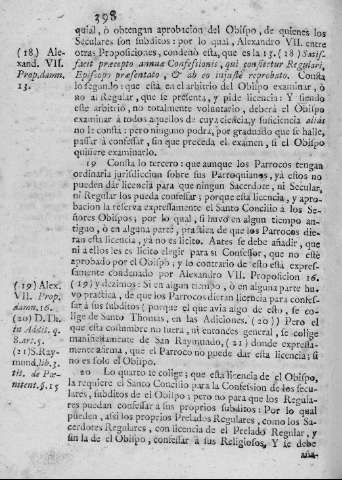 398
quial, ò obtengan aprobacion del Obispo, de quienes los
Seculares son subditos: por lo qual, Alexandro VII. entre
otras Proposiciones, condenò esta, que es la 13. (18) Satis-
facit præcepto annuæ Confessionis, qui confitetur Regulari,
Episcopo præsentato, & ab eo injustè reprobato. Consta
lo segundo: que està en el arbitrio del Obispo examinar, ò
no al Regular, que se presenta, y pide licencia: Y siendo
este arbitrio, no totalmente voluntario, deberà el Obispo
examinar à todos aquellos de cuya ciencia, y suficiencia aliàs
no le consta: pero ninguno podrà, por graduado que se halle,
passar à confessar, sin que preceda el examen, si el Obispo
quisiere examinarlo.
(18) Ale-
xand. VII.
Prop. damn.
13.
19 Consta lo tercero: que aunque los Parrocos tengan
ordinaria jurisdiccion sobre sus Parroquianos, yà estos no
pueden dàr licencia para que ningun Sacerdote, ni Secular,
ni Regular los pueda confessar; porque esta licencia, y apro-
bacion la reserva expressamente el Santo Concilio à los Se-
ñores Obispos; por lo qual, si huvo en algun tiempo an-
tiguo, ò en alguna parte, practica de que los Parrocos die-
ran esta licencia, yà no es licito. Antes se debe añadir, que
ni à ellos les es licito elegir para sì Confessor, que no estè
aprobado por el Obispo; y lo contrario de esto està expres-
samente condenado por Alexandro VII. Proposicion 16.
(19) y dezimos: Si en algun tiempo, ò en alguna parte hu-
vo practica, de que los Parrocos dieran licencia para confes-
sar à sus subditos (porque el que avia algo de esto, se co-
lige de Santo Thomàs, en las Adiciones. (20)) Pero el
que esta costumbre no fuera, ni entonces general, se colige
manifiestamente de San Raymundo, (21) donde expressa-
mente afirma, que el Parroco no puede dar esta licencia; si
no es solo el Obispo.
(19) Alex.
VII. Prop.
damn. 16.
(20) D. Th.
in Addit. q.
8. art. 5.
(21) S. Ray-
mund. lib. 3.
tit. de Pæ-
nitent. §. 15
20 Lo quarto se colige; que esta licencia de el Obispo,
la requiere el Santo Concilio para la Confession de los secu-
lares, subditos de el Obispo; pero no para que los Regula-
res puedan confessar à sus proprios subditos: Por lo qual
pueden, assi los proprios Prelados Regulares, como los Sa-
cerdotes Regulares, con licencia de el Prelado Regular, y
sin la de el Obispo, confessar à sus Religiosos. Y se debe
aña-